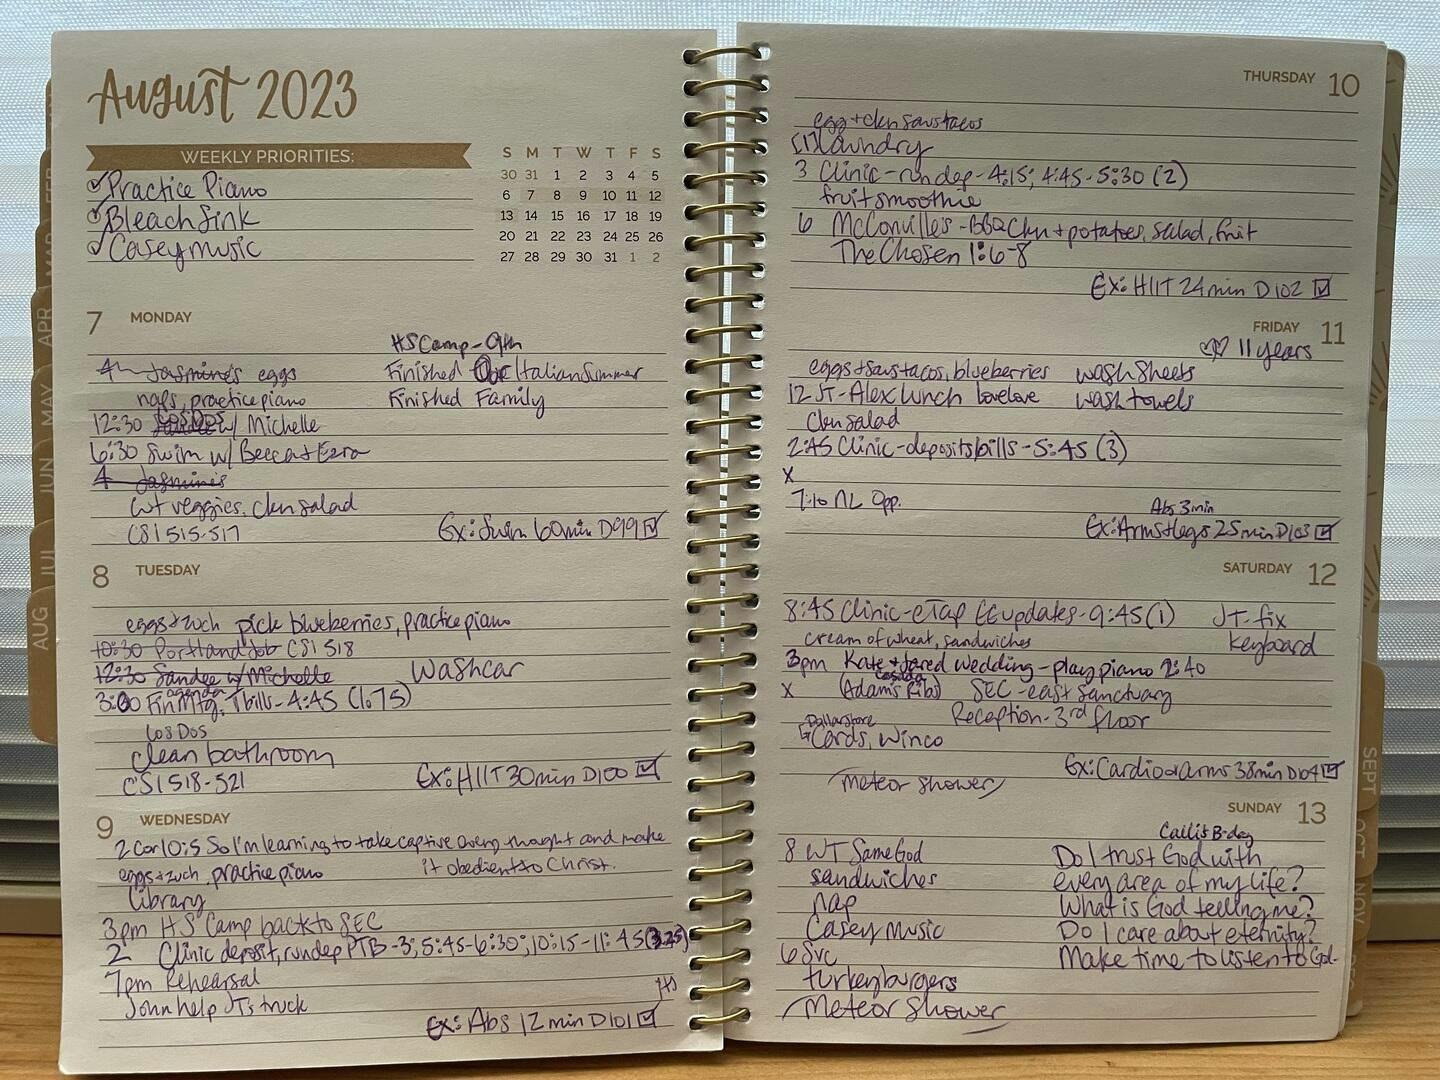 August 2023
WEEKLY PRIORITIES:
Practice Piano
Bleach Sink
Casey music
S M T W T F S
30 31 1 2 3 4 5
6 7 8 9 10 11 12
13 14 15 16 17 18 19
20 21 22 23 24 25 26
27 28 29 30 31 1 2
7 MONDAY
HS Camp - 9th
4 Jasmine's eggs
Finished Our Italian Summer
naps, practice piano
Finished Family
12:30 Los Dos w/ Michelle
6:30 Swim w/ Becca + Ezra
4 Jasmine's
veggies, ckn salad
CSI 515-517
Ex: Swim 60 min D99
8 TUESDAY
eggs + zuch pick blueberries, practice piano
10:30 Portland Job CSI 518
12:30 Sandee w/ Michelle
Wash car
agenda
3:00 Fin Mtg, bills - 4:45 (1.75)
Los Dos
clean bathroom
CSI 518-521
Ex: HIIT 30 min D100
9 WEDNESDAY
2 Cor 10:5 So I'm learning to take captive every thought and make
it obedient to Christ.
eggs + zuch, practice piano
library
3pm HS Camp back to SEC
2 Clinic deposit, run dep PTB - 3; 5:45-6:30; 10:15-11:45 (3.25)
7pm Rehearsal
John help JT's truck
Ex: Abs 12 min D101
THURSDAY 10
egg + ckn saus tacos
(1) laundry
3 Clinic - run dep - 4:15; 4:45-5:30 (2)
fruit smoothie
6 McConville's - BBQ Ckn + potatoes, salad, fruit
The Chosen 1:6-8
Ex: HIIT 24 min D102
FRIDAY 11
11 years
eggs + saus tacos, blueberries
wash sheets
12 JT - Alex lunch lovelove
wash towels
Ckn salad
2:45 Clinic - deposits/bills - 5:45 (3)
x
7:10 NL Opp.
Abs 3 min
Ex: Arms + legs 25 min D103
SATURDAY 12
8:45 Clinic - eTap EE updates - 9:45 (1)
JT - fix
keyboard
cream of wheat, sandwiches
3pm Kate + Jared wedding - play piano 2:40
x (Adam's Ribs) SEC - east sanctuary
Reception - 3rd floor
Dollar store
Cards, Winco
Meteor shower
Ex: Cardio + arms 38 min D104
SUNDAY 13
B-day
8 WT Same God
sandwiches
nap
Casey Music
6 Svc
turkey burgers
Meteor Shower
Do I trust God with
every area of my life?
What is God telling me?
Do I care about eternity?
Make time to listen to God.
JUL
AUG
APR
MAY
JUN
SEPT
OCT
NOV